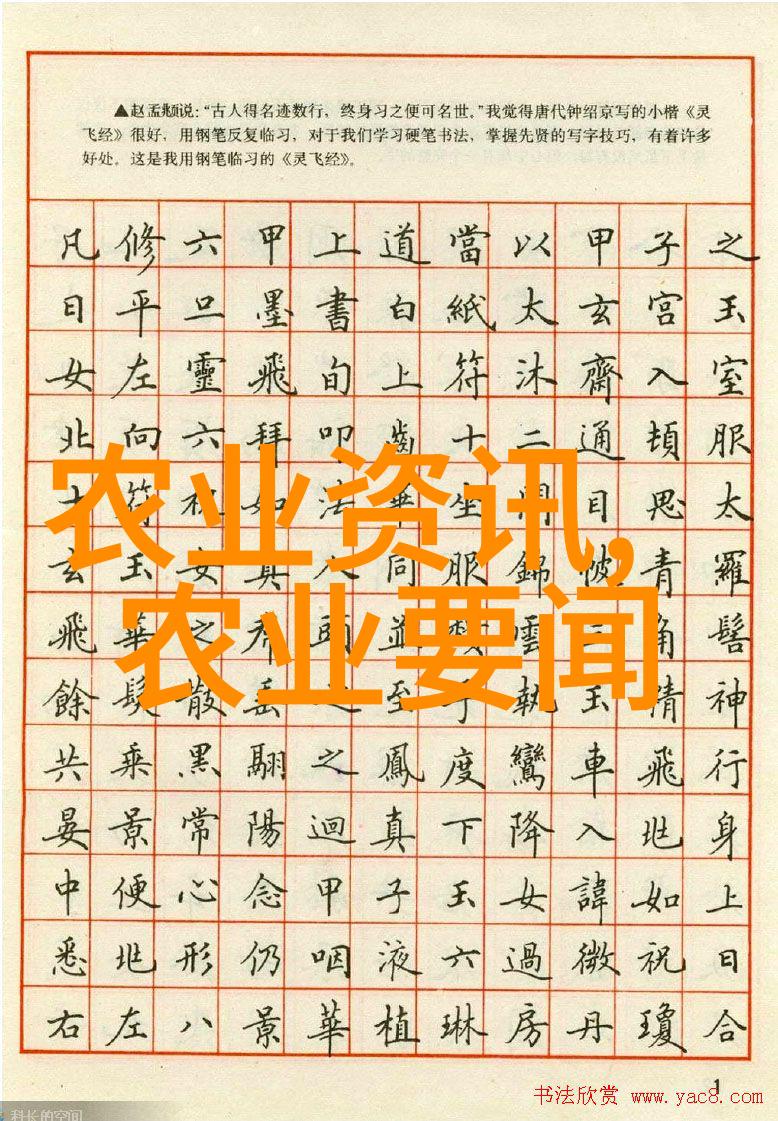 ▲赵孟頫说:“古人得名迹数行,终身习之便可名世。”我觉得唐代钟绍京写的小楷《灵
飞经》很好,用钢笔反复临习,对于我们学习硬笔书法,掌握先贤的写字技巧,有着许多
好处。这是我用钢笔临习的《灵飞经》。
凡修六甲上道當以甲子之
日平旦墨書白紙太玄宮玉
女左靈飛旬上符沐齋入室
北向六拜叩齒十二通頓服
十符祝如法畢坐閉目思太
玄玉女真人同服錦帔青羅
飛華之頭並雲三角髻
餘髮散垂之至手執玉精神
共乘黑翮之鳳度鸞車飛行
晏景常陽迴真下降入兆身
中便心念甲子玉女諱如上
悉兆形仍咽液六過微祝曰
右左八景華植琳房丹瓊合
农业资讯,
农业要闻
1
书法欣赏 www.yac8.com
科长的空间